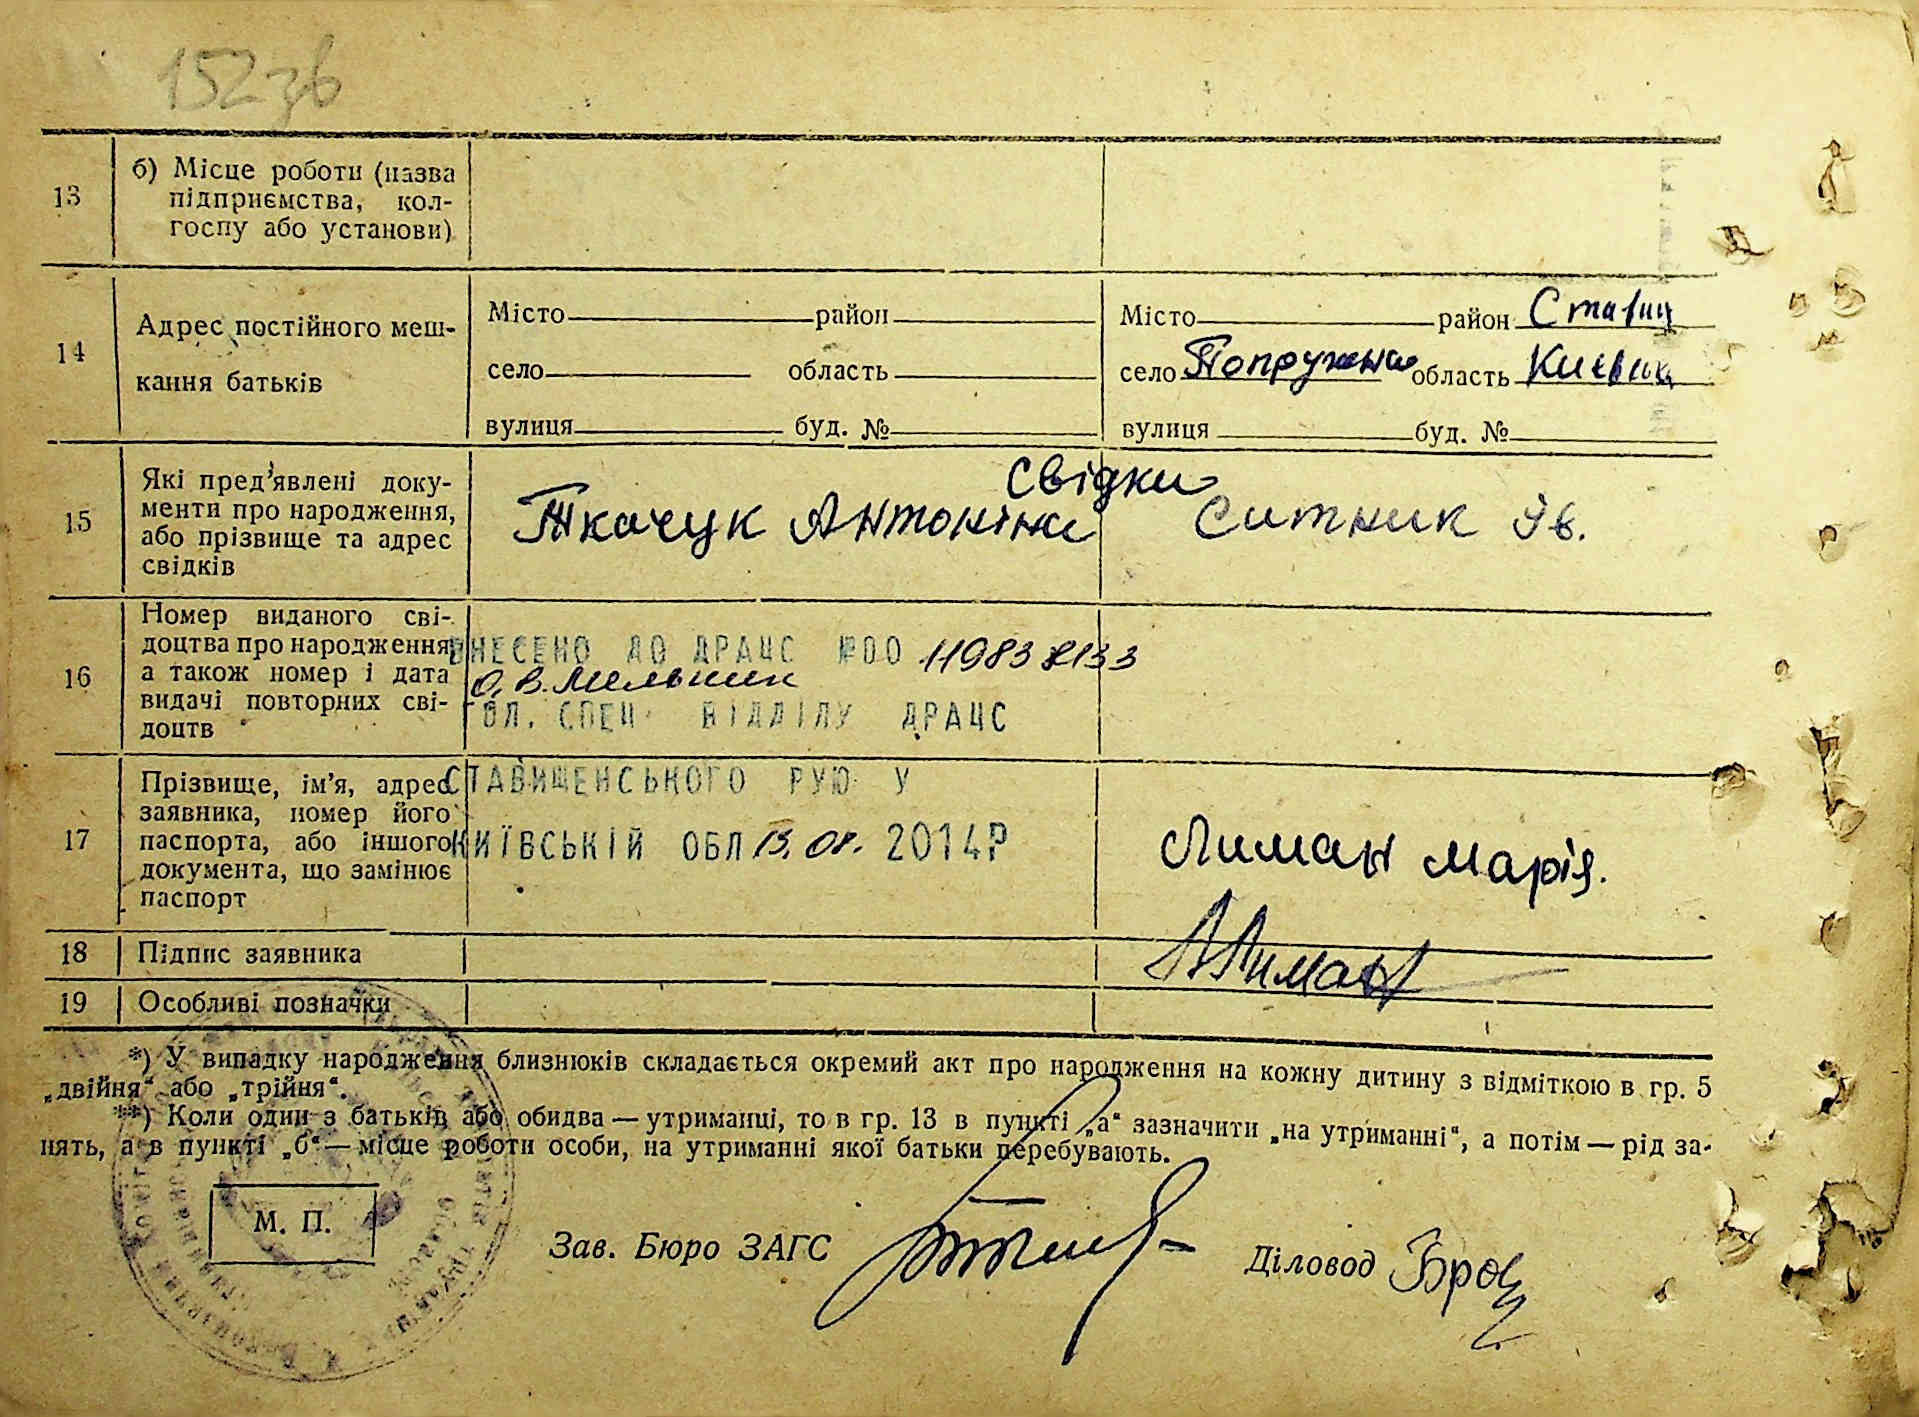 152зв
13 б) Місце роботи (назва
підприємства, кол-
госпу або установи)
14 Адрес постійного меш-
кання батьків
Місто район
село область
вулиця буд. №
Місто район Ставищ
село Попружна область Київськ
вулиця буд. №
15 Які пред'явлені доку-
менти про народження,
або прізвище та адрес
свідків
свідки
Ткачук Антоніна Ситник Ів.
16 Номер виданого сві-
доцтва про народження
а також номер і дата
видачі повторних сві-
доцтв
ВНЕСЕНО ДО ДРАЦС №00 11983
О.В. Мельник
ГОЛ. СПЕЦ ВІДДІЛУ ДРАЦС
17 Прізвище, ім'я, адрес
заявника, номер його
паспорта, або іншого
документа, що замінює
паспорт
СТАВИЩЕНСЬКОГО РУЮ У
КИЇВСЬКІЙ ОБЛ 2014Р
Лиман Марія.
18 Підпис заявника Лиман
19 Особливі позначки
*) У випадку народження близнюків складається окремий акт про народження на кожну дитину з відміткою в гр. 5
„двійня“ або „трійня“.
**) Коли один з батьків або обидва — утриманці, то в гр. 13 в пункті „а“ зазначити „на утриманні“, а потім — рід за-
нять, а в пункті „б“ — місце роботи особи, на утриманні якої батьки перебувають.
М. П.
Зав. Бюро ЗАГС
Діловод